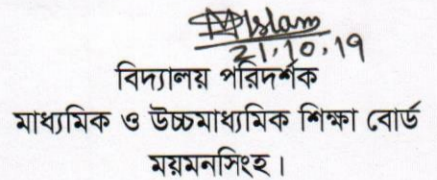 MIslam
21.10.19
বিদ্যালয় পরিদর্শক
মাধ্যমিক ও উচ্চমাধ্যমিক শিক্ষা বোর্ড
ময়মনসিংহ।